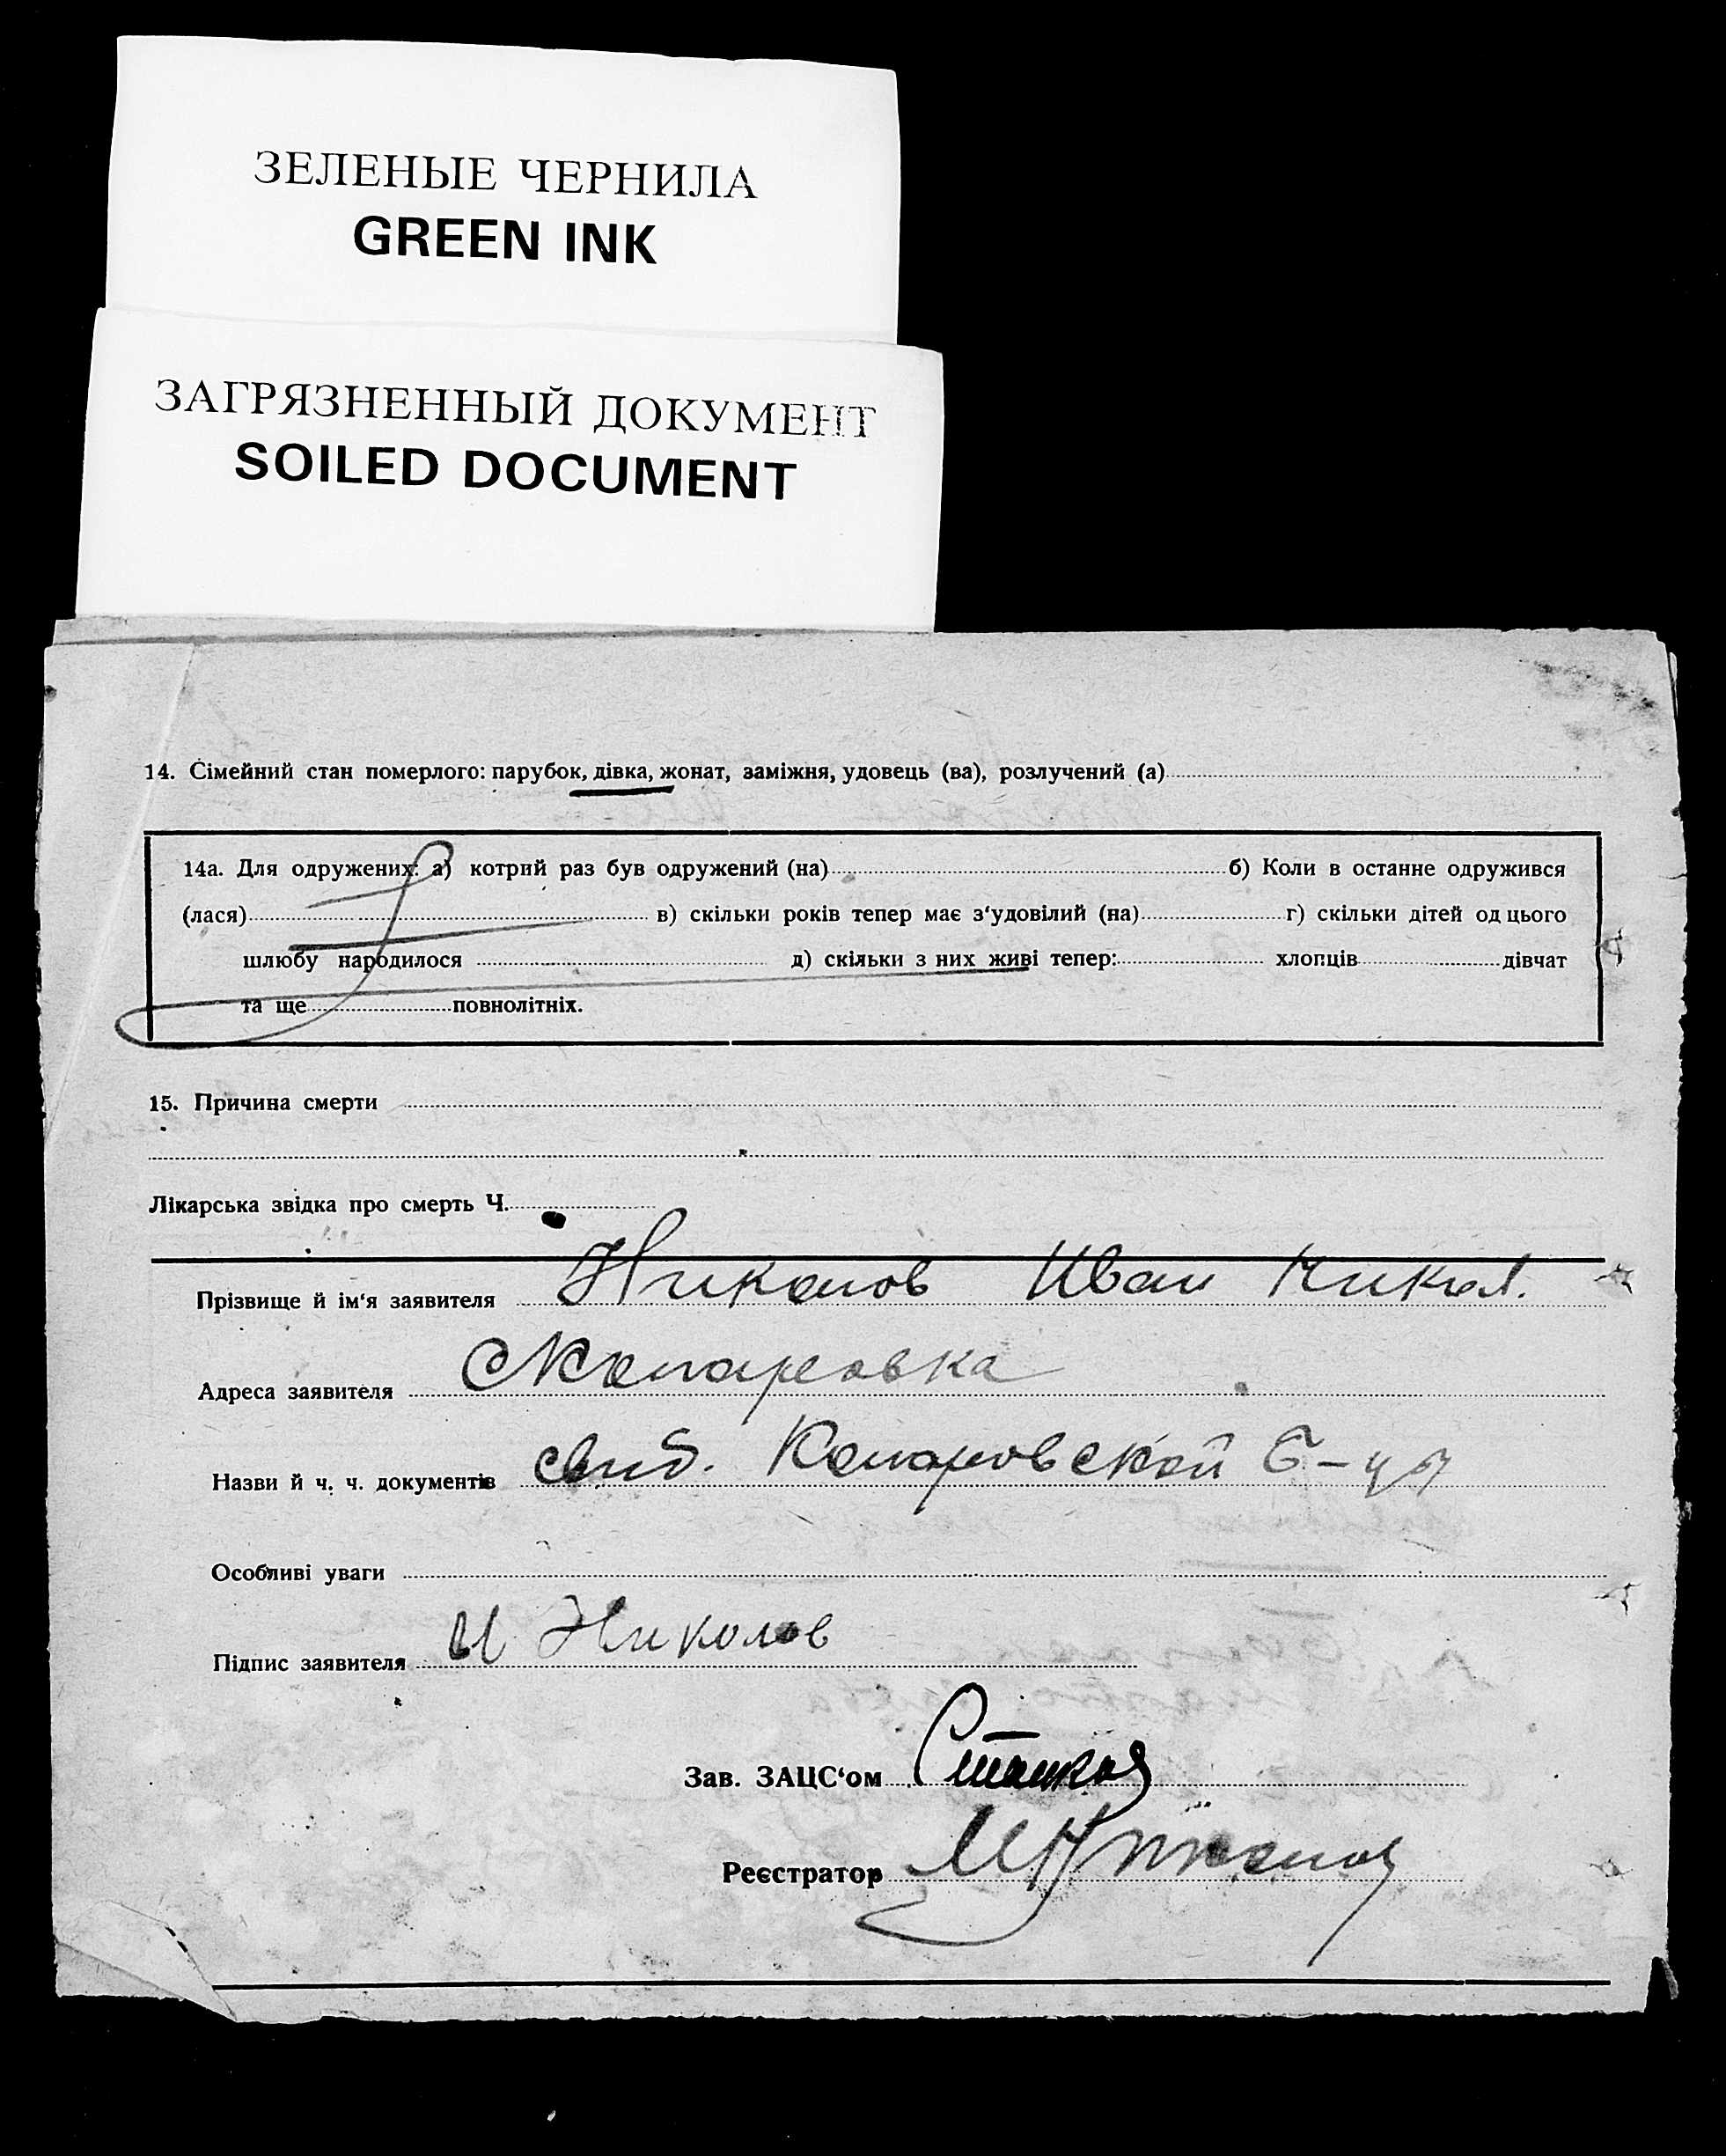 ЗЕЛЕНЫЕ ЧЕРНИЛА
GREEN INK
ЗАГРЯЗНЕННЫЙ ДОКУМЕНТ
SOILED DOCUMENT
14. Сімейний стан померлого: парубок, дівка, жонат, заміжня, удовець (ва), розлучений (а)
14а. Для одружених: а) котрий раз був одружений (на) б) Коли в останне одружився
(лася) в) скільки років тепер має з‘удовілий (на) г) скільки дітей од цього
шлюбу народилося д) скільки з них живі тепер: хлопців дівчат
та ще повнолітніх.
15. Причина смерти
Лікарська звідка про смерть Ч.
Прізвище й ім‘я заявителя Николов Иван Никол.
Адреса заявителя
Назви й ч. ч. документів Копаровской Б-цы
Особливі уваги
Підпис заявителя И Николов
Зав. ЗАЦС‘ом
Реєстратор